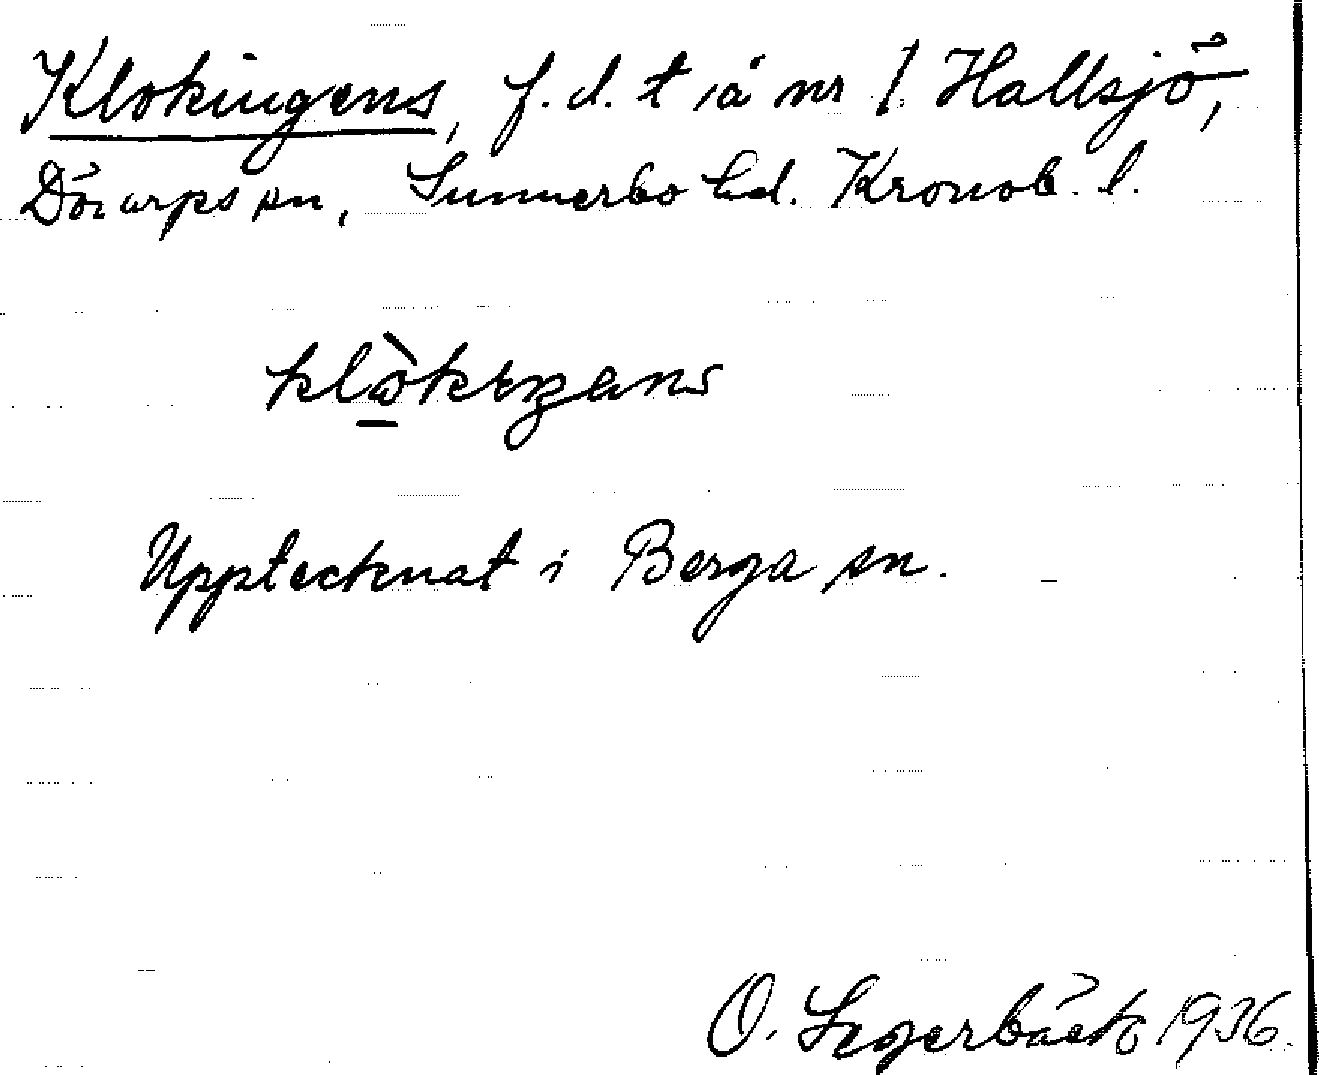 Klokingens, f. d. t å nr 1 Hallsjö,
Dörarps sn, Sunnerbo hd. Kronob. l.
Upptecknat i Berga sn.
O. Segerbäck 1936.